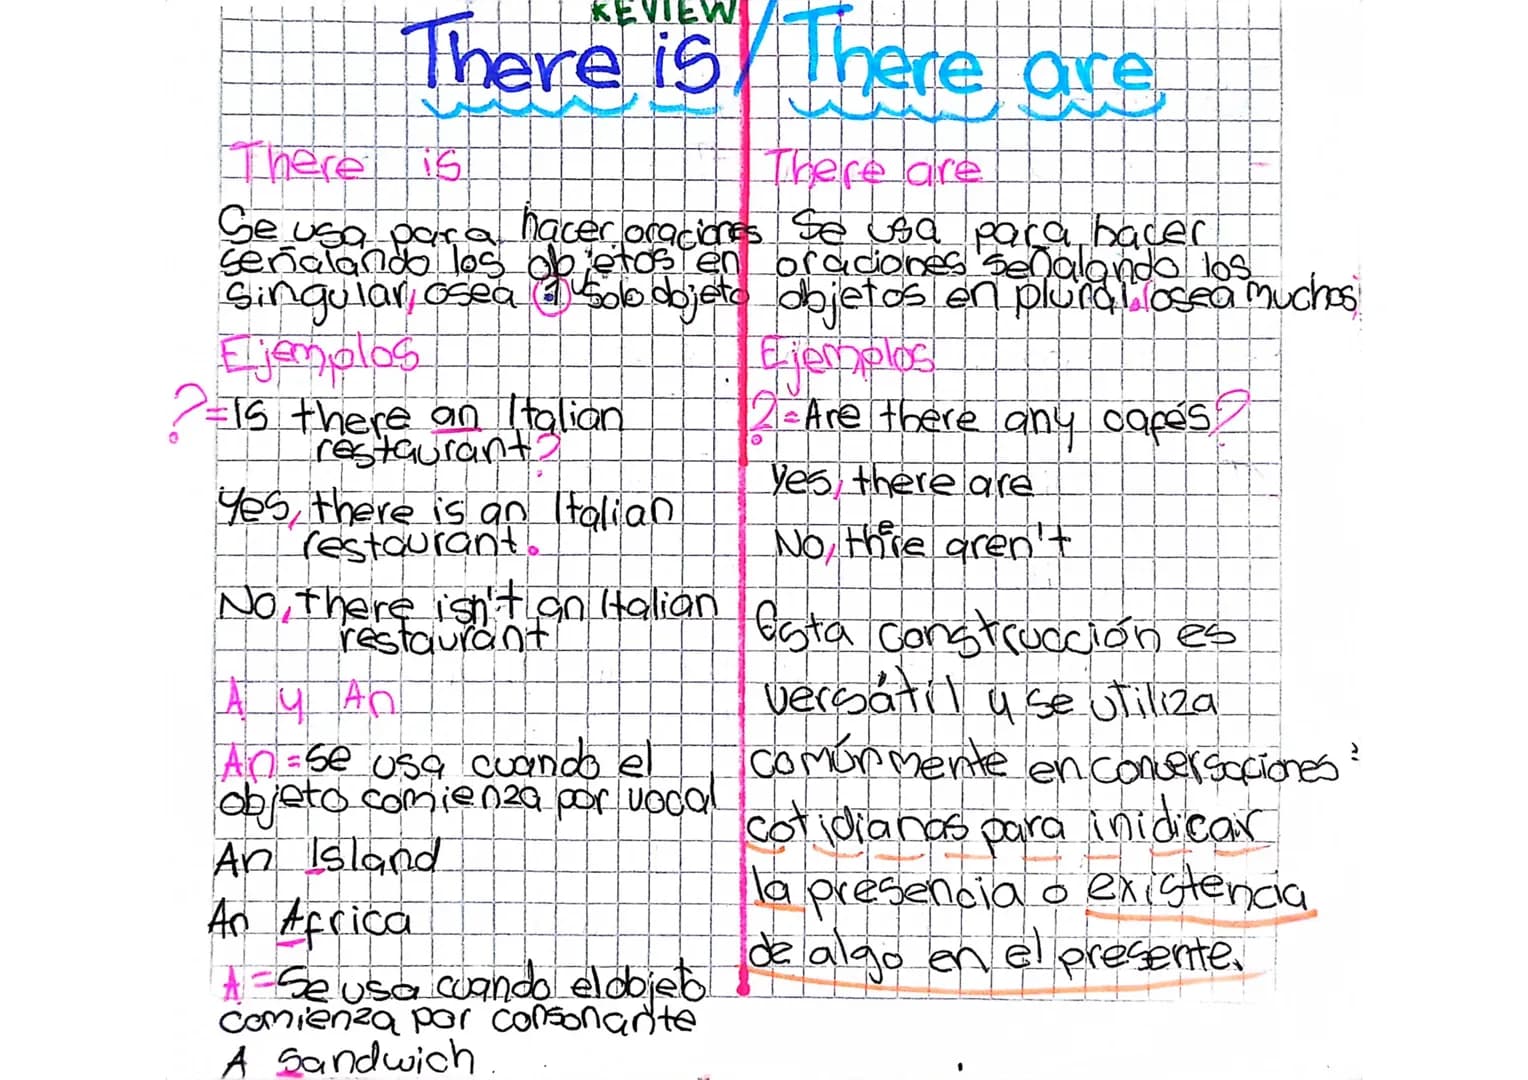 REVIEW
There is / There are
There is
Se usa para hacer oraciones
señalando los objetos en
singular, osea 1 solo objeto
Ejemplos
?=Is there an Italian
restaurant?
Yes, there is an Italian
restaurant.
No, there isn't an Italian
restaurant
A y An
An=se usa cuando el
objeto comienza por vocal
An Island
An Africa
A=Se usa cuando el objeto
comienza por consonante
A Sandwich.
There are
Se usa para hacer
oraciones señalando los
objetos en plural, osea muchos
Ejemplos
?=Are there any cafés?
Yes, there are
No, there aren't
Esta construcción es
versátil y se utiliza
comúnmente en conversaciones
cotidianas para inidicar
la presencia o existencia
de algo en el presente.